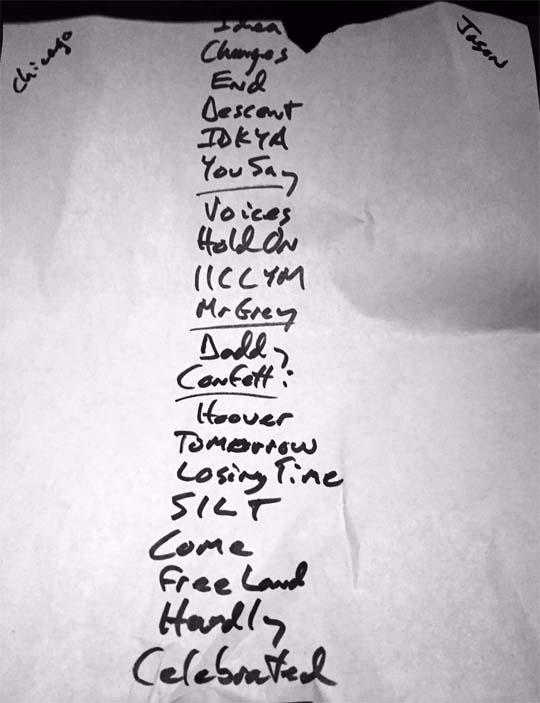 Chicago
Jason
Idea
Changes
End
Descent
IDKYA
You Say
Voices
Hold On
IICCYM
Mr Grey
Daddy
Confetti
Hoover
Tomorrow
Losing Time
SILT
Come
Free Land
Hardly
Celebrated